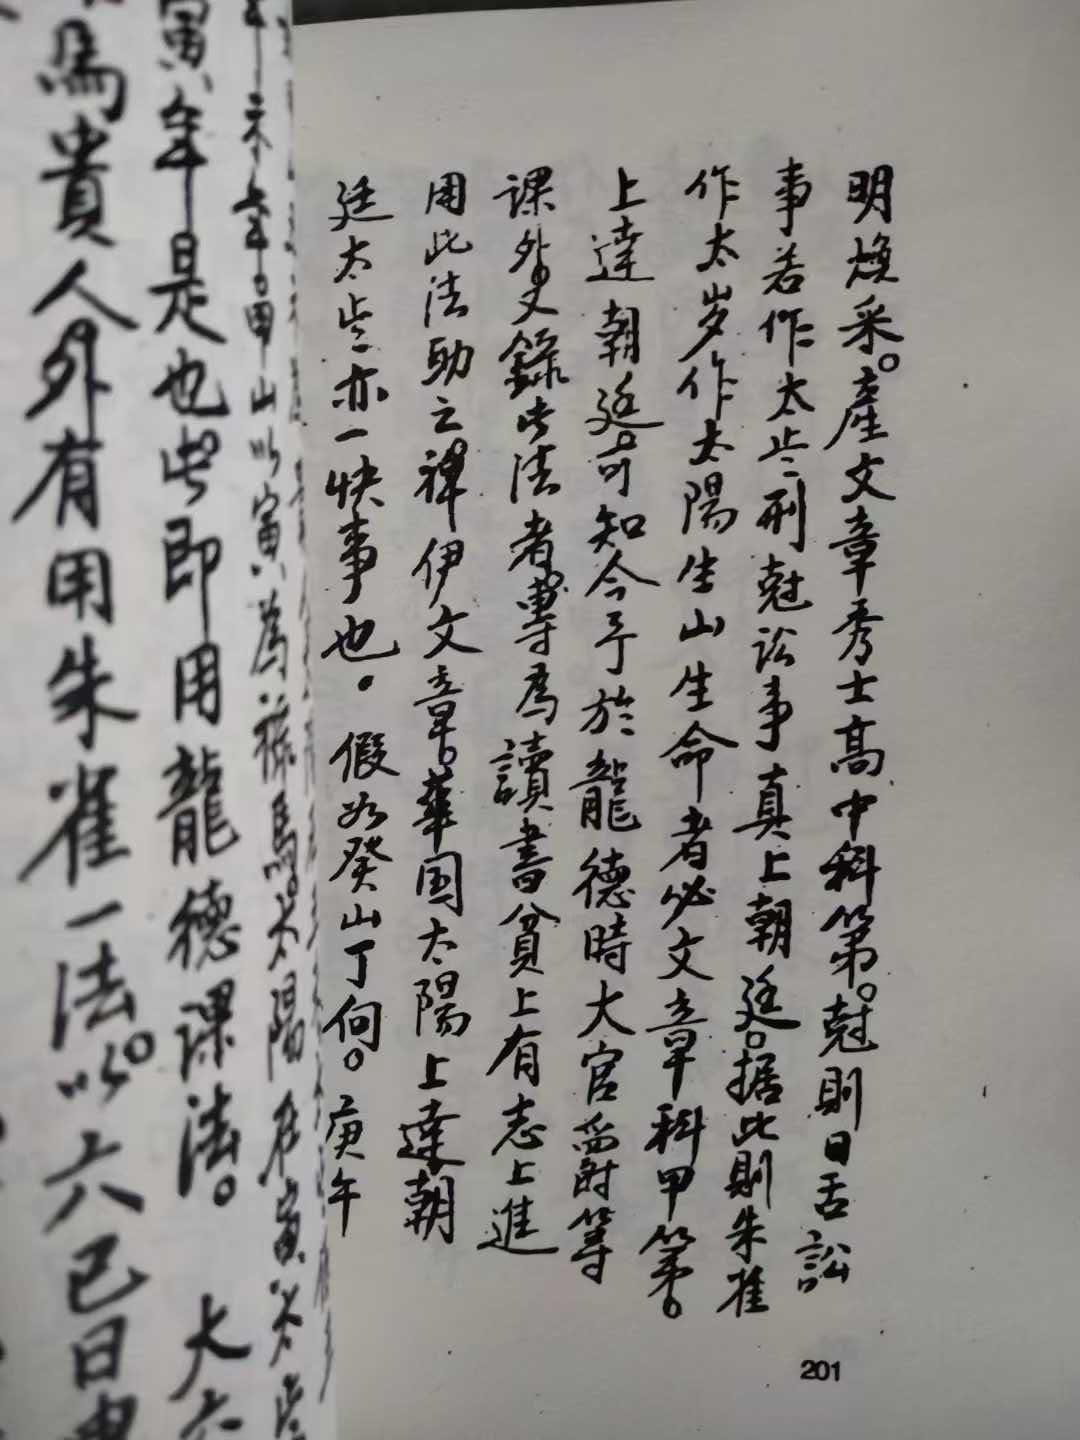 明煥采。產文章秀士高中科第。尅則日舌訟
事若作太歲刑尅訟事真上朝廷。据此則朱雀
作太岁作太陽生山生命者必文章科甲第。
上達朝廷可知今予於龍德時大官爵等
課外又錄此法者專為讀書貧上有志上進
用此法助之裨伊文章。華国太陽上達朝
廷太歲亦一快事也。假如癸山丁向。庚午
年
山以寅為祿馬。太陽在寅太歲
寅年是也此即用龍德課法。大六
馬貴人外有用朱雀一法。以六己日
201